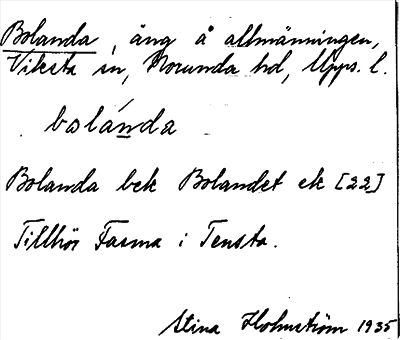 Bolanda, äng å allmänningen,
Viksta sn, Norunda hd, Upps. l.
bolánda
Bolanda bek Bolandet ek [22]
Tillhör Fasma i Tensta.
Stina Holmström 1935